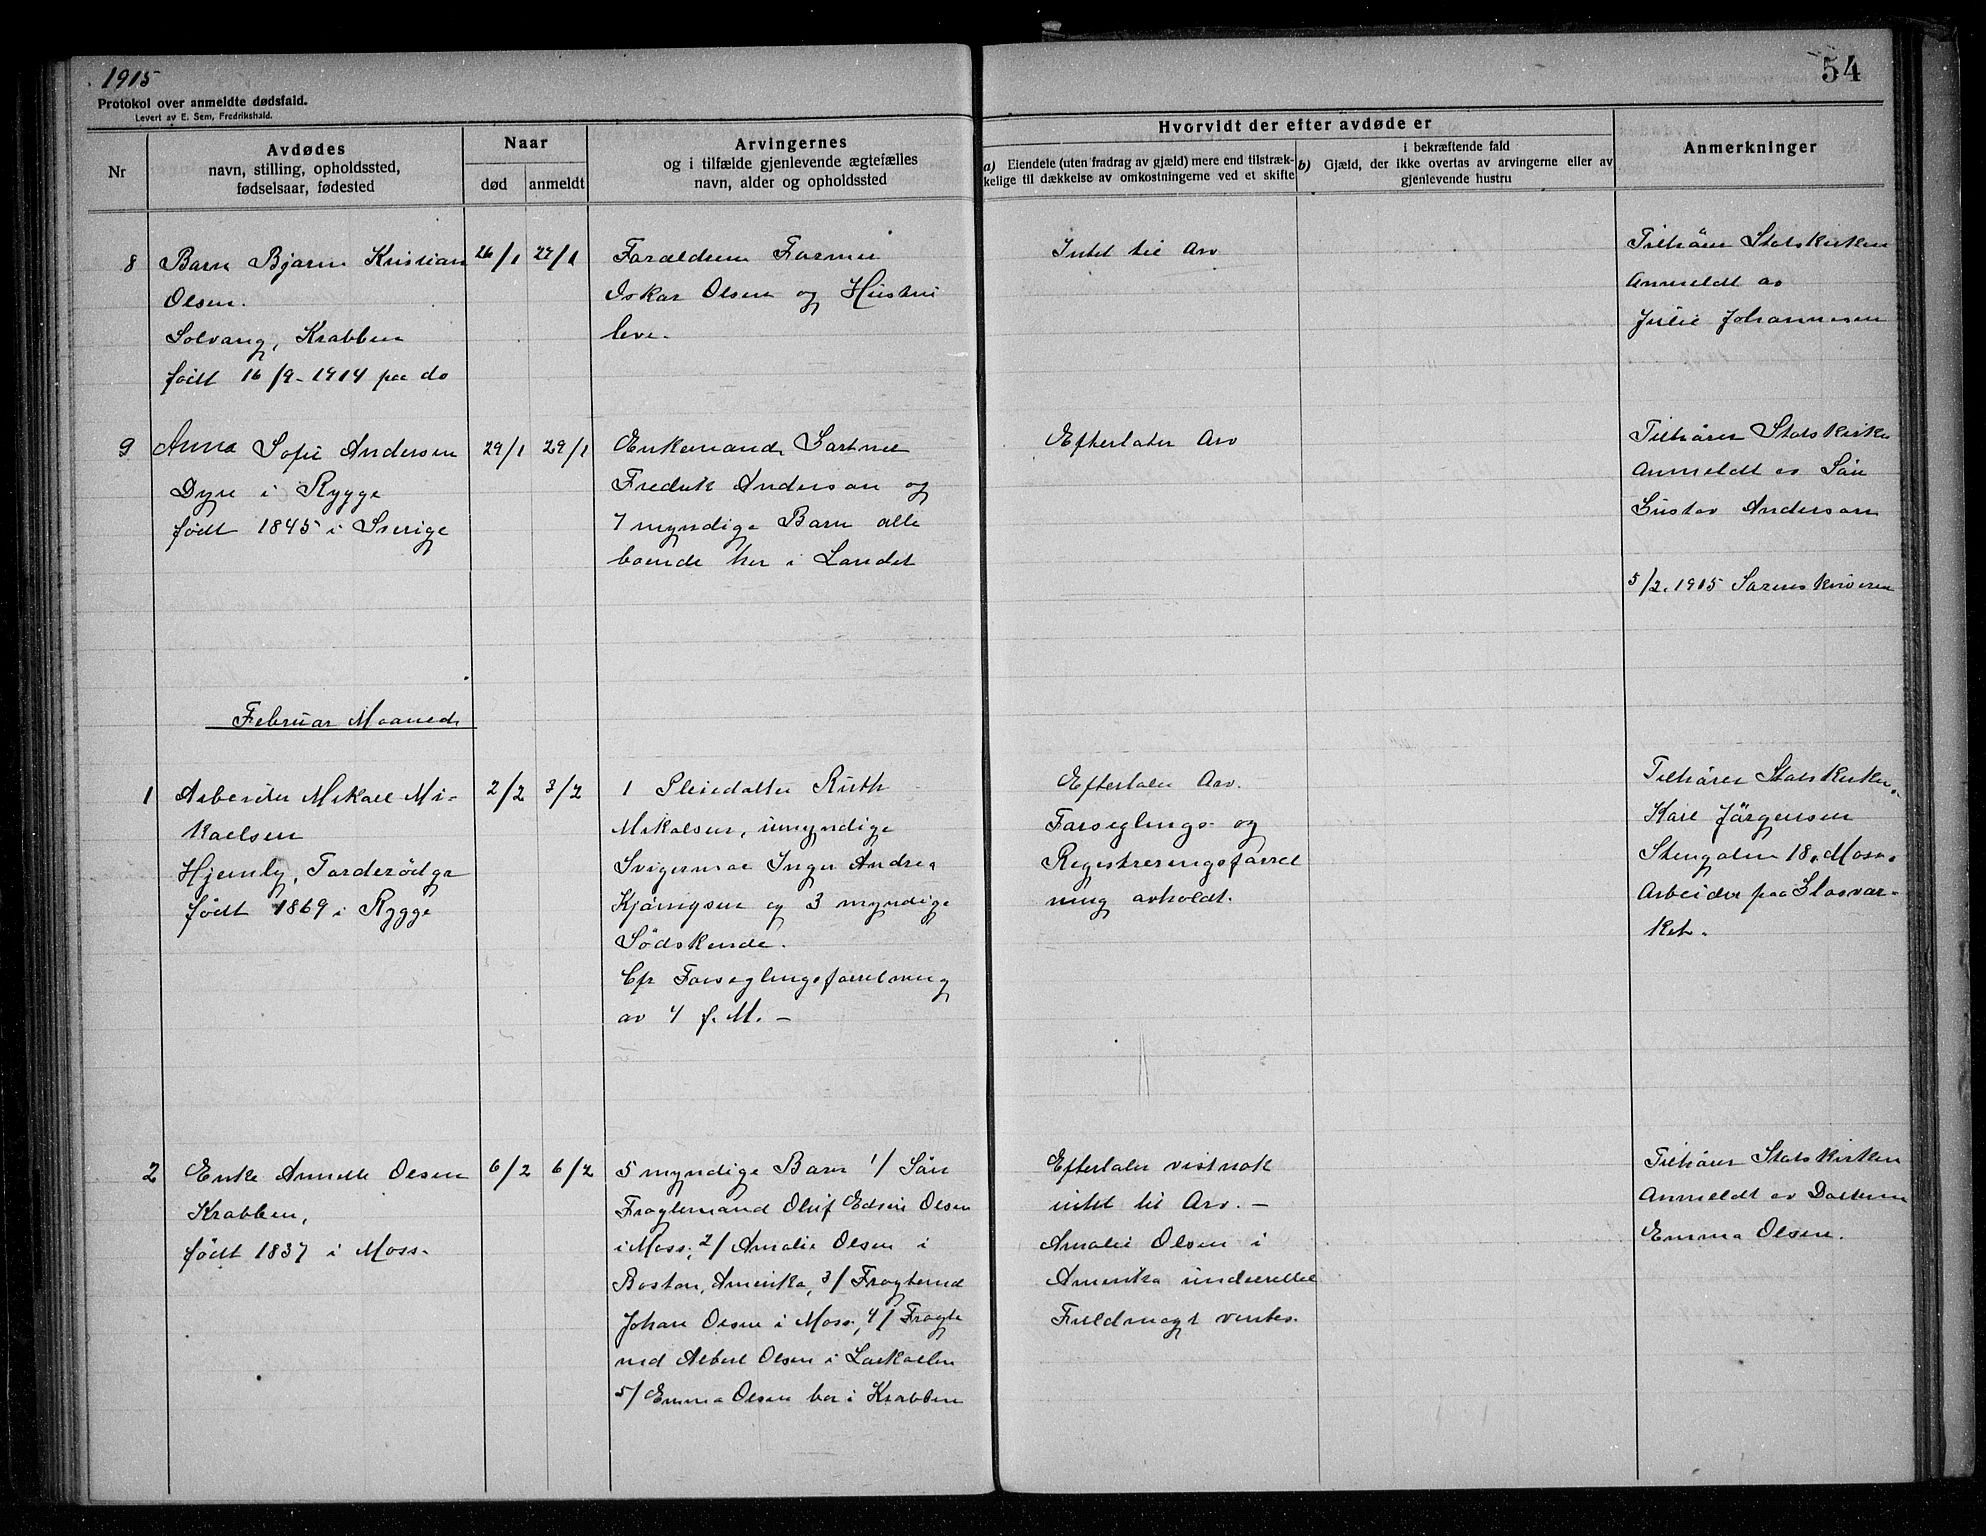 1915
54
Protokol over anmeldte dødsfald.
Levert av E. Sem, Fredrikshald.
Nr
Avdødes
navn, stilling, opholdssted,
fødselsaar, fødested
Naar
død
anmeldt
Arvingernes
og i tilfælde gjenlevende ægtefælles
navn, alder og opholdssted
Hvorvidt der efter avdøde er
a) Eiendele (uten fradrag av gjæld) mere end tilstræk-
kelige til dækkelse av omkostningerne ved et skifte
i bekræftende fald
b) Gjæld, der ikke overtas av arvingerne eller av
gjenlevende hustru
Anmerkninger
8
Barn Bjarne Kristian
Olsen.
Solvang, Krabben
født 16/9-1914 paa do
26/1
27/1
Forældrene Farmer
Oskar Olsen og Hustru
leve.
Intet til Arv
Tilhører Statskirken
Anmeldt av
Julie Johannesen
9
Anna Sofie Andersen
Dyre i Rygge
født 1845 i Sverige
29/1
29/1
Enkemand Gartner
Fredrik Anderson og
7 myndige Barn alle
boende her i Landet
Efterlater Arv
Tilhører Statskirke
Anmeldt av Søn
Gustav Anderson
5/2. 1915 Sorenskriveren
Februar Maaned
1
Arbeider Mikael Mi-
kaelsen
Hjemly, Torderødgr
født 1869 i Rygge
2/2
3/2
1 Pleiedatter Ruth
Mikalsen, umyndige
Svigermor Inger Andrea
og 3 myndige
Sødskende.
Cfr Forseglingsforretning
av 4 f. M. -
Efterlater Arv.
Forseglings- og
Registreringsforret
ning avholdt.
Tilhører Statskirken.
Karl Jørgensen
Stengaten 18. Moss.
Arbeider paa Glasvær-
ket.
2
Enke Annette Olsen
Krabben,
født 1837 i Moss.
6/2
6/2
5 myndige Barn 1/ Søn
Fragtemand Oluf Edvin Olsen
i Moss, 2/ Amalie Olsen i
Boston, Amerika, 3/ Fragtemd
Johan Olsen i Moss, 4/ Fragte
md Albert Olsen i Larkollen
5/ Emma Olsen bor i Krabben
Efterlater vistnok
intet til Arv. -
Amalie Olsen i
Amerika underrettet
Fuldmagt ventes.
Tilhører Statskirken
Anmeldt av Datteren
Emma Olsen.